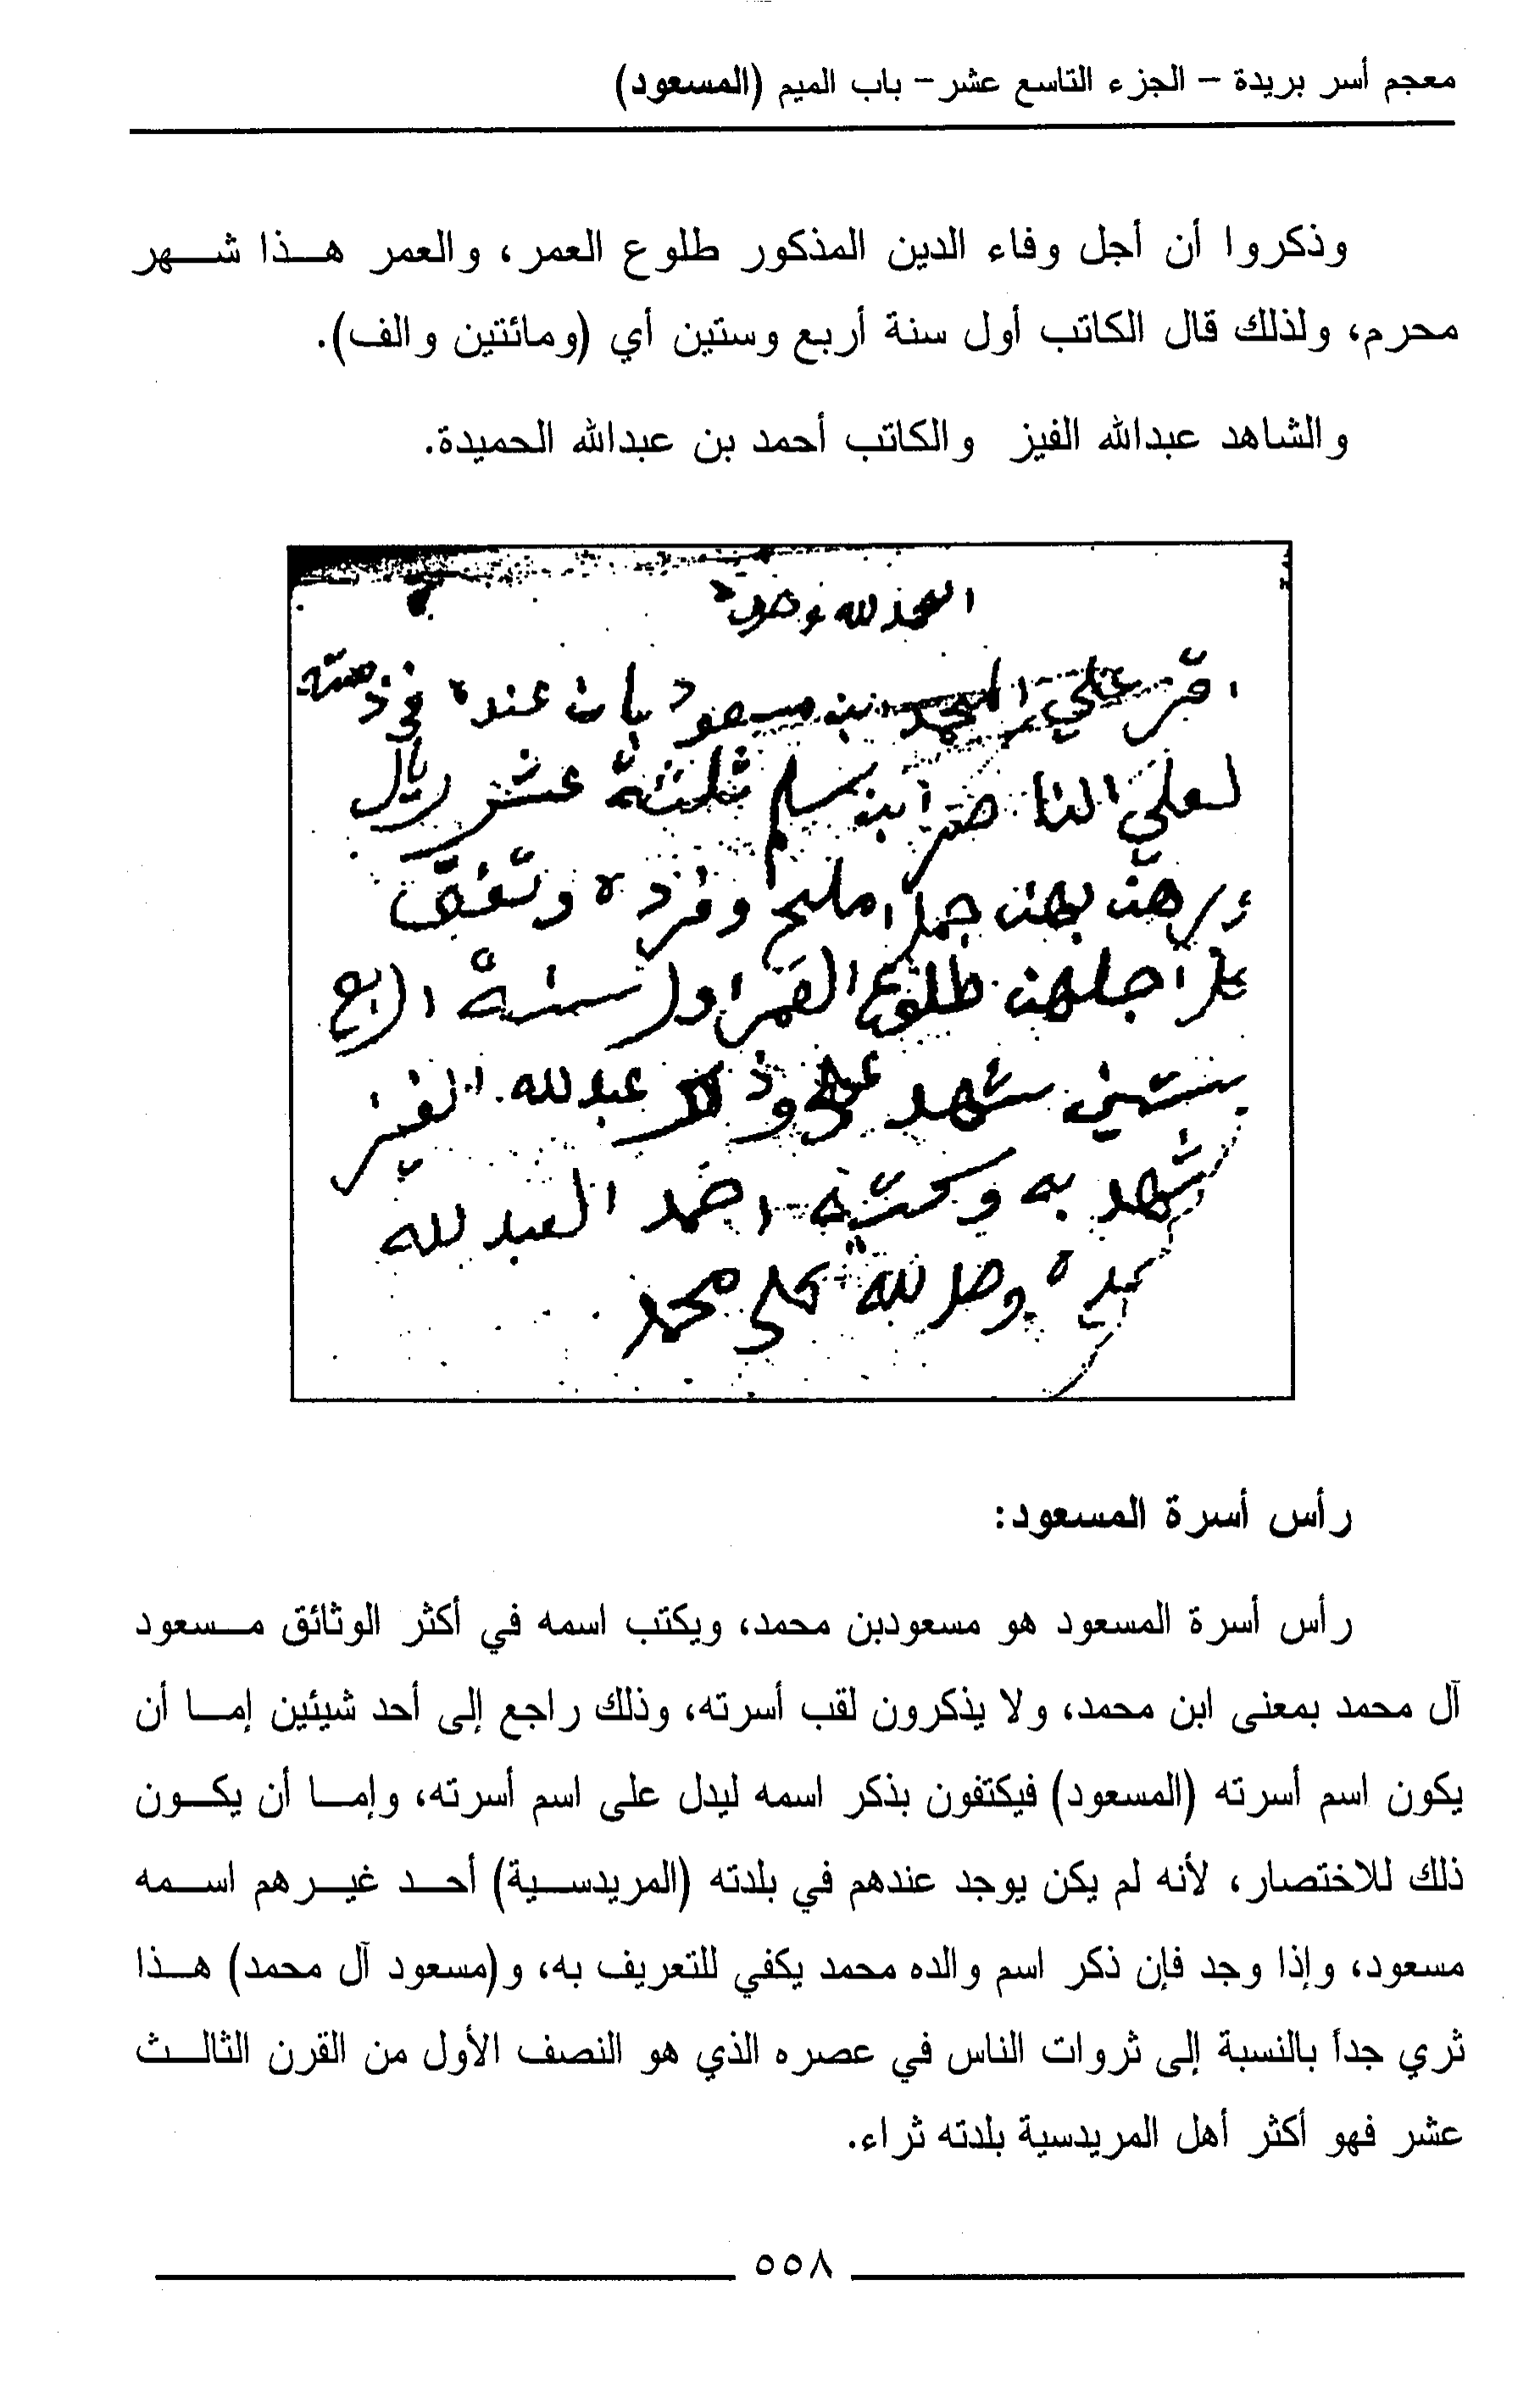 معجم أسر بريدة – الجزء التاسع عشر – باب الميم (المسعود)
وذكروا أن أجل وفاء الدين المذكور طلوع العمر، والعمر هذا شهر
محرم، ولذلك قال الكاتب أول سنة أربع وستين أي (ومائتين والف).
والشاهد عبدالله الفيز والكاتب أحمد بن عبدالله الحميدة.
الحمد لله وحده
اقر علي المحمد ابن مسعود بان عنده في ذمته
لعلي الناصر ابن سلم ثلثة عشر ريال
وارهنه بهن جمل املح وفرده وتفق
اجلهن طلوع العمر اول سنة اربع
ستين شهد على ذلك عبدلله الفيز
شهد به وكتبه احمد العبدلله
وصل لله على محمد
رأس أسرة المسعود:
رأس أسرة المسعود هو مسعودبن محمد، ويكتب اسمه في أكثر الوثائق مسعود
آل محمد بمعنى ابن محمد، ولا يذكرون لقب أسرته، وذلك راجع إلى أحد شيئين إما أن
يكون اسم أسرته (المسعود) فيكتفون بذكر اسمه ليدل على اسم أسرته، وإما أن يكون
ذلك للاختصار، لأنه لم يكن يوجد عندهم في بلدته (المريدسية) أحد غيرهم اسمه
مسعود، وإذا وجد فإن ذكر اسم والده محمد يكفي للتعريف به، و(مسعود آل محمد) هذا
ثري جداً بالنسبة إلى ثروات الناس في عصره الذي هو النصف الأول من القرن الثالث
عشر فهو أكثر أهل المريدسية بلدته ثراء.
٥٥٨